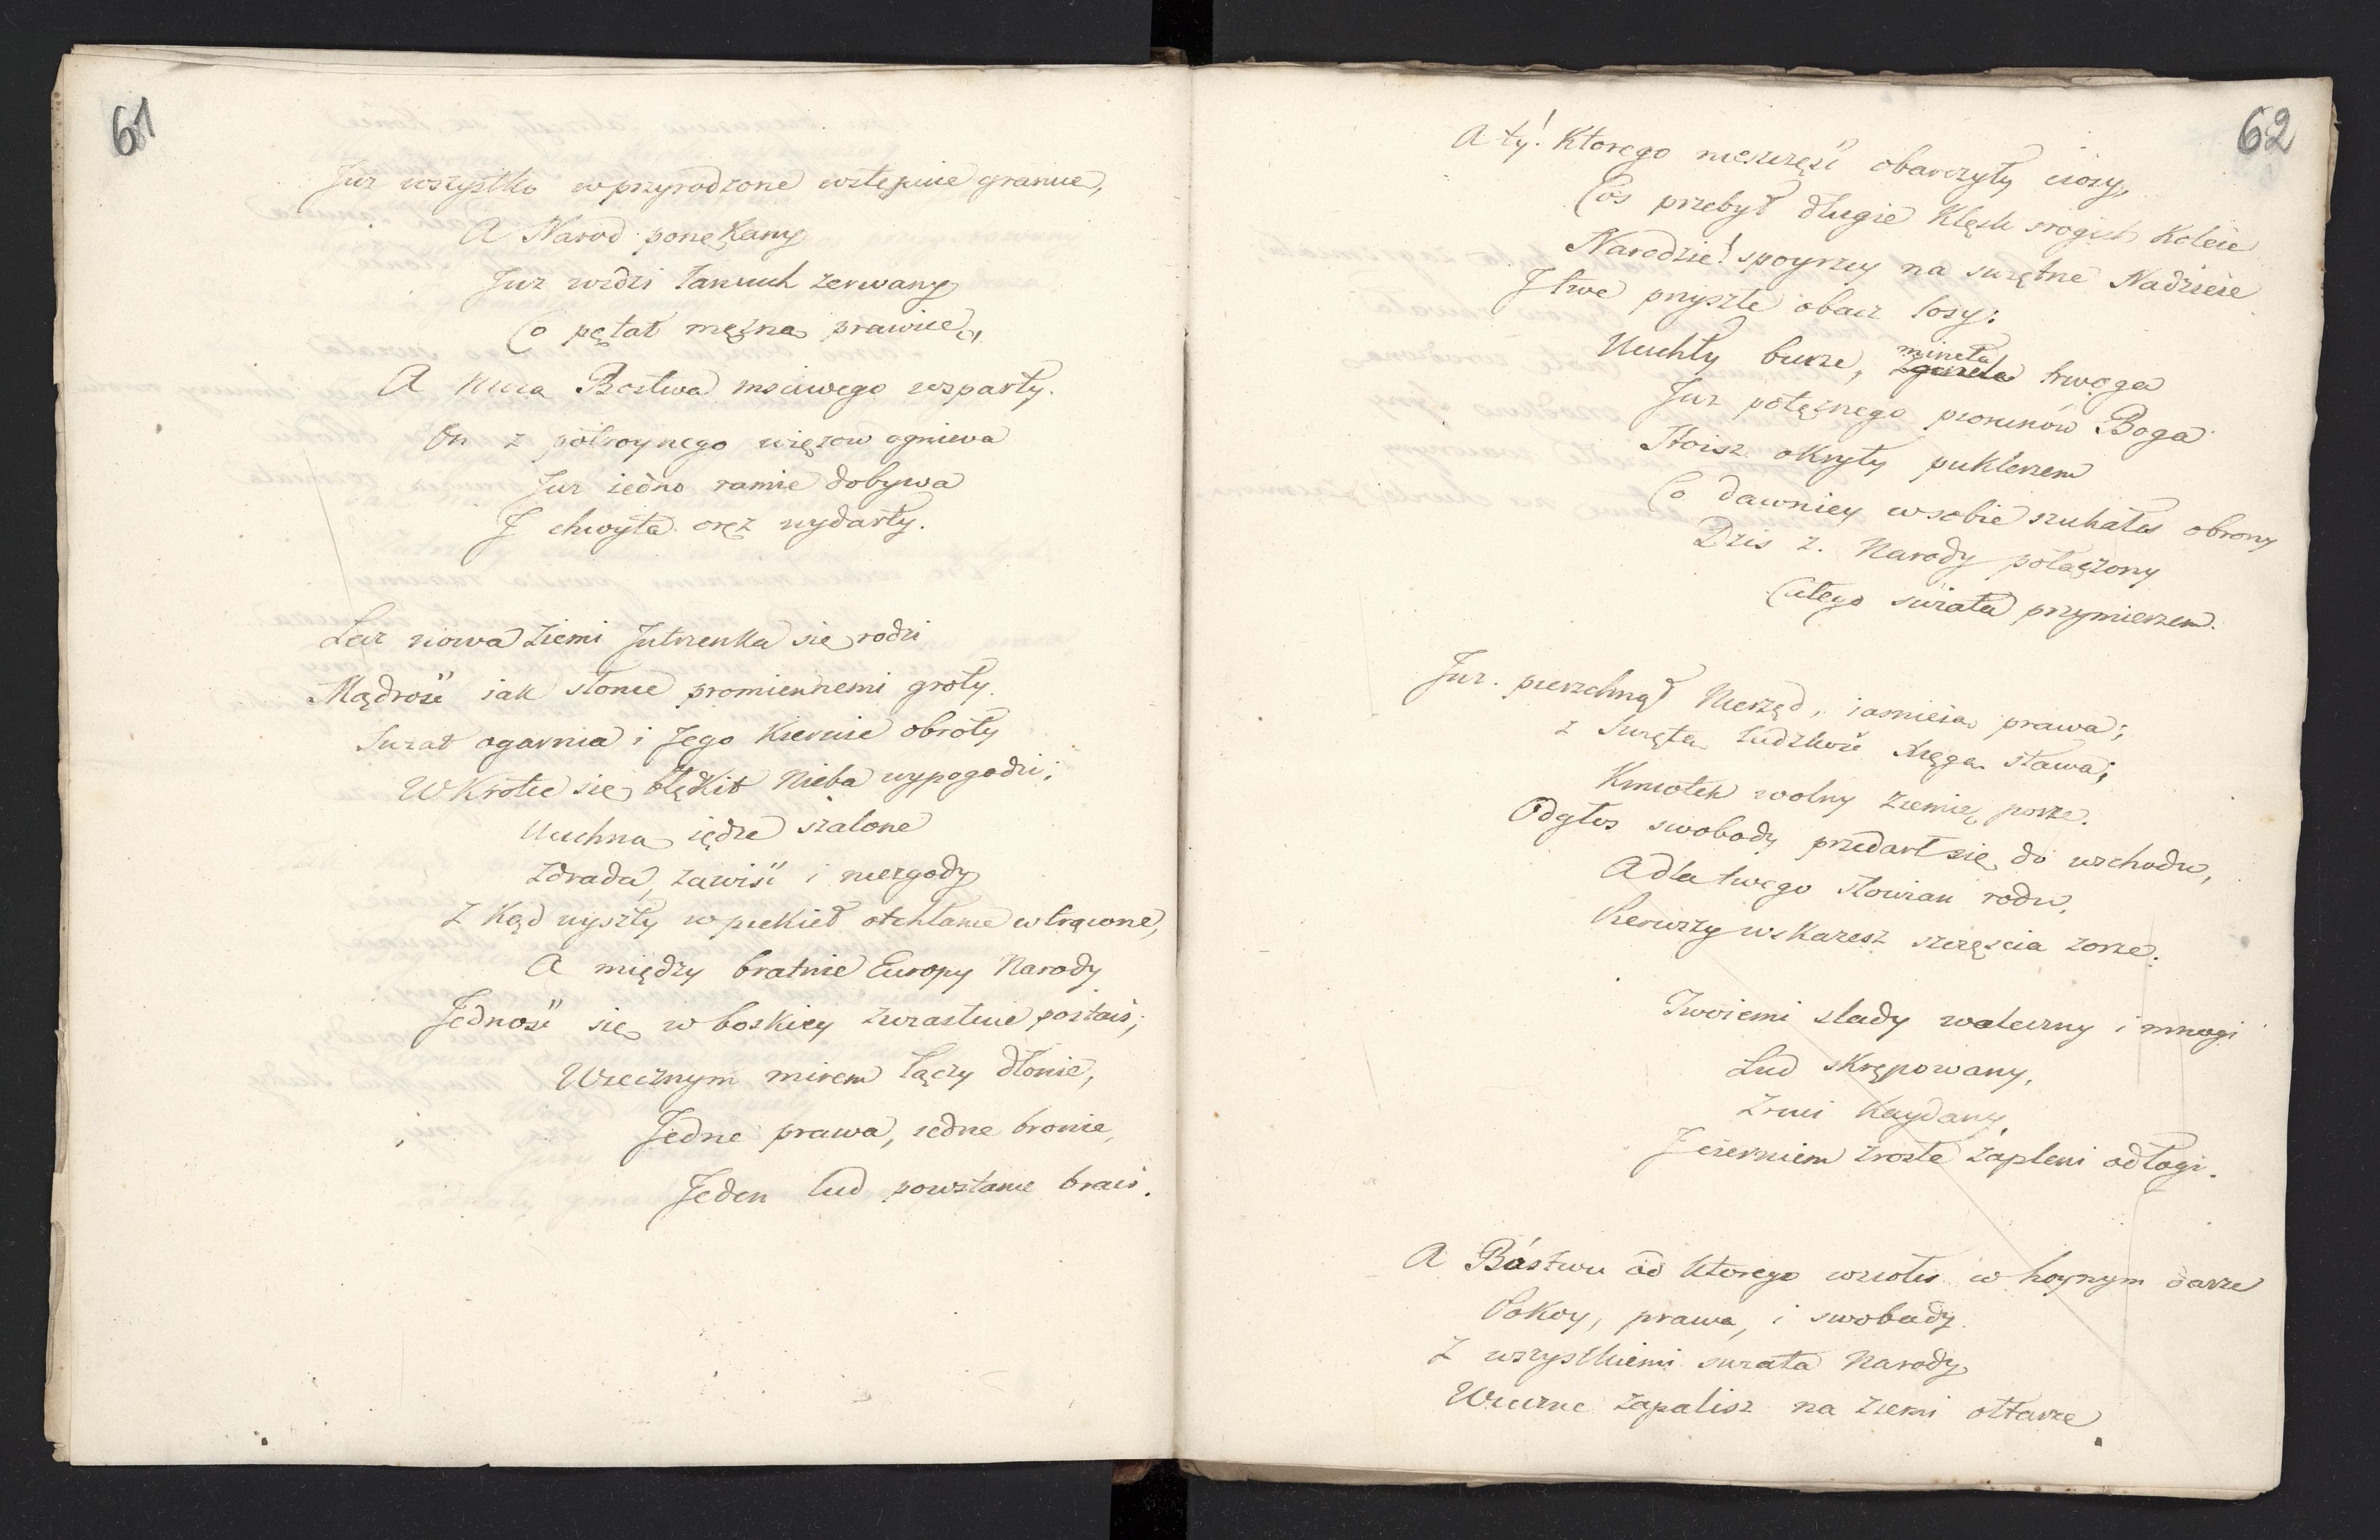 61
Juz wszystko w przyrodzone wstępuie granice,
A Narod ponękany
Juz widzi łancuch zerwany
Co pętał mężną prawicę,
A Bostwa msciwego wsparty.
On z potroynego więzow ogniwa
Juz iedno ramie dobywa
J chwyta oręz wydarty.
Lecz nowa Ziemi Jutrzenka się rodzi
Mądrość iak słonce promiennemi groty
Swiat ogarnia i Jego kieruie obroty
Wkrotce się błękit Nieba wypogodzi;
Ucichną iędze szalone
Zdrada, zawiść i niezgody
Z kąd wyszły w piekieł otchłanie wtrącone,
A między bratnie Europy Narody
Jedność się w boskiey zwiastuie postaci;
Wiecznym mirem łączy dłonie,
Jedne prawa, iedne bronie,
Jeden lud powstanie braci.
62
A ty! Ktorego nieszczęść obarczyły ciosy,
Cos przebył długie klęsk srogich koleie
Narodzie! spoyrzy na swiętne Nadzieie
J twe przyszłe obacz losy:
Ucichły burze, minęła trwoga
Juz potęznego piorunów Boga
Stoisz okryty puklerzem
Co dawniey w sobie szukałes obrony
Dzis z Narody połaęzony
Całego swiata przymierzem.
Juz pierzchnął Nierząd, iasnieią prawa;
z Swiętą ludzkość xięgą stawa;
Kmiotek wolny ziemię porze.
Odgłos swobody przedarł się do wschodu,
A dla twego Słowian rodu,
Pierwszy wskazesz szczęscia zorze.
Twoiemi slady waleczny i mnogi
Lud skrępowany,
Zruci kaydany
J cierniem zrosłe zapleni odłogi.
A Bóstwu od ktorego wziołes w hoynym darze
Pokoy, prawa, i swobody
Z wszystkiemi swiata Narody
Wieczne zapalisz na ziemi ołtarze.